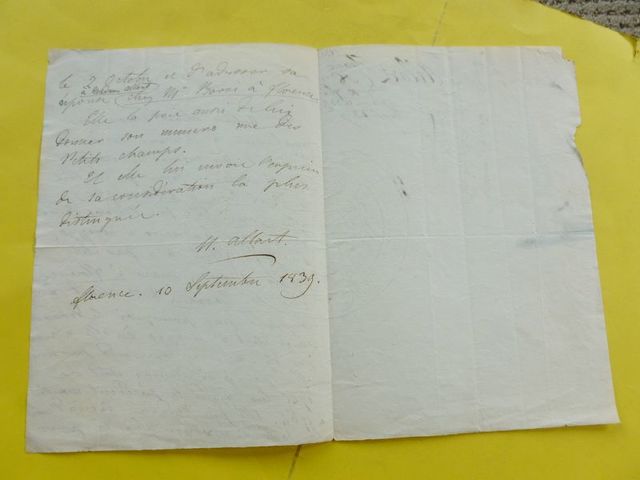 le 2 octobre et d'adresser sa
à
réponse chez Mr Borri à florence.
Elle la prie aussi de lui
donner son numero rue des
Petits champs.
Et elle lui envoie l'expression
de sa considération la plus
distinguée.
H. allart.
florence. 10 Septembre 1839.